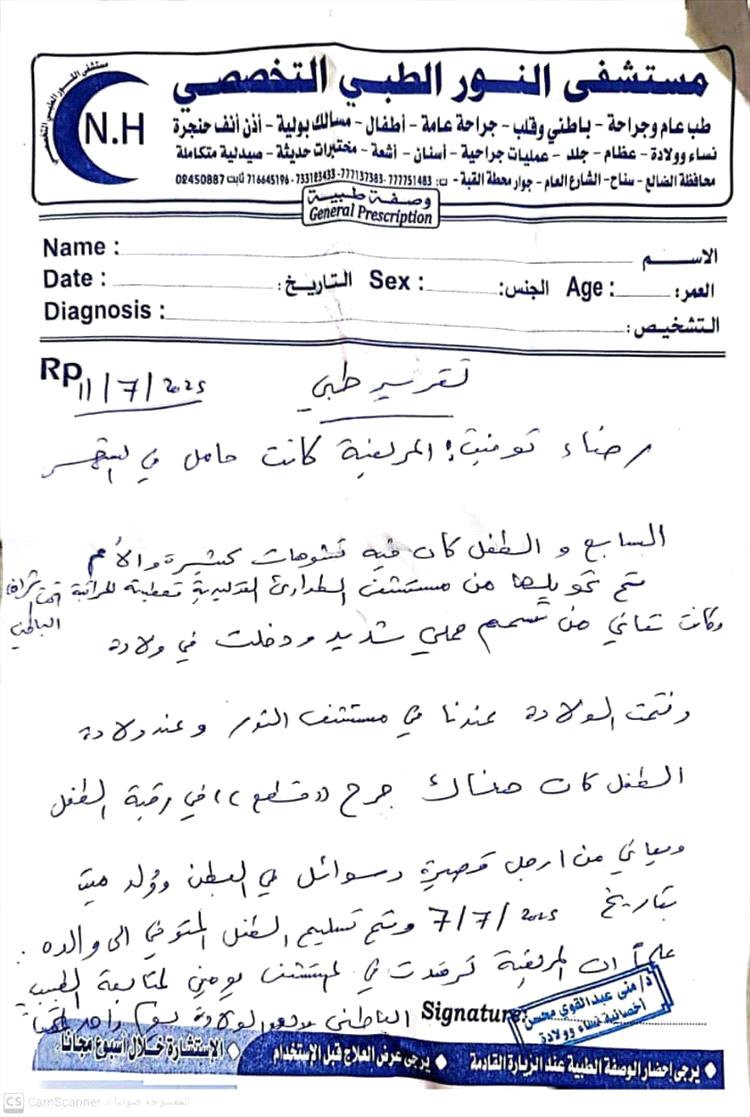 مستشفى النور الطبي التخصصي
طب عام وجراحة - باطني وقلب - جراحة عامة - أطفال - مسالك بولية - أذن أنف حنجرة
نساء وولادة - عظام - جلد - عمليات جراحية - أسنان - أشعة - مختبرات حديثة - صيدلية متكاملة
محافظة الضالع - سناح - الشارع العام - جوار محطة القبة - ت: 777751483 - 777137383 - 733183433 - 716645196 ثابت 02450887
مستشفى النور الطبي التخصصي
N.H
وصفة طبية
General Prescription
Name : الاسم
Date : التاريخ: Sex : الجنس: Age : العمر:
Diagnosis : التشخيص:
Rp
11/7/2025 تقرير طبي
المريضة كانت حامل في الشهر
السابع و الطفل كان فيه تشوهات كثيرة والأم
تم تحويلها من مستشفى الطوارئ التوليدية
وكانت تعاني من تسمم حملي شديد ودخلت في ولادة
وتمت الولادة عندنا في مستشفى النور وعند ولادة
الطفل كان هناك جرح ((قطع)) في رقبة الطفل
ويعاني من ارجل قصيرة وسوائل في البطن وولد ميت
بتاريخ 7/7/2025 وتم تسليم الطفل المتوفي الى والده .
علماً ان المريضة ترقدت في المستشفى يومين لمتابعة الطبيب
الباطني الولادة
Signature:
د/ منى عبدالقوي محسن
أخصائية نساء وولادة
يرجى إحضار الوصفة الطبية عند الزيارة القادمة ◆ يرجى عرض العلاج قبل الإستخدام ◆ الإستشارة خلال أسبوع مجاناً
CS CamScanner الممسوحة ضوئيا بـ